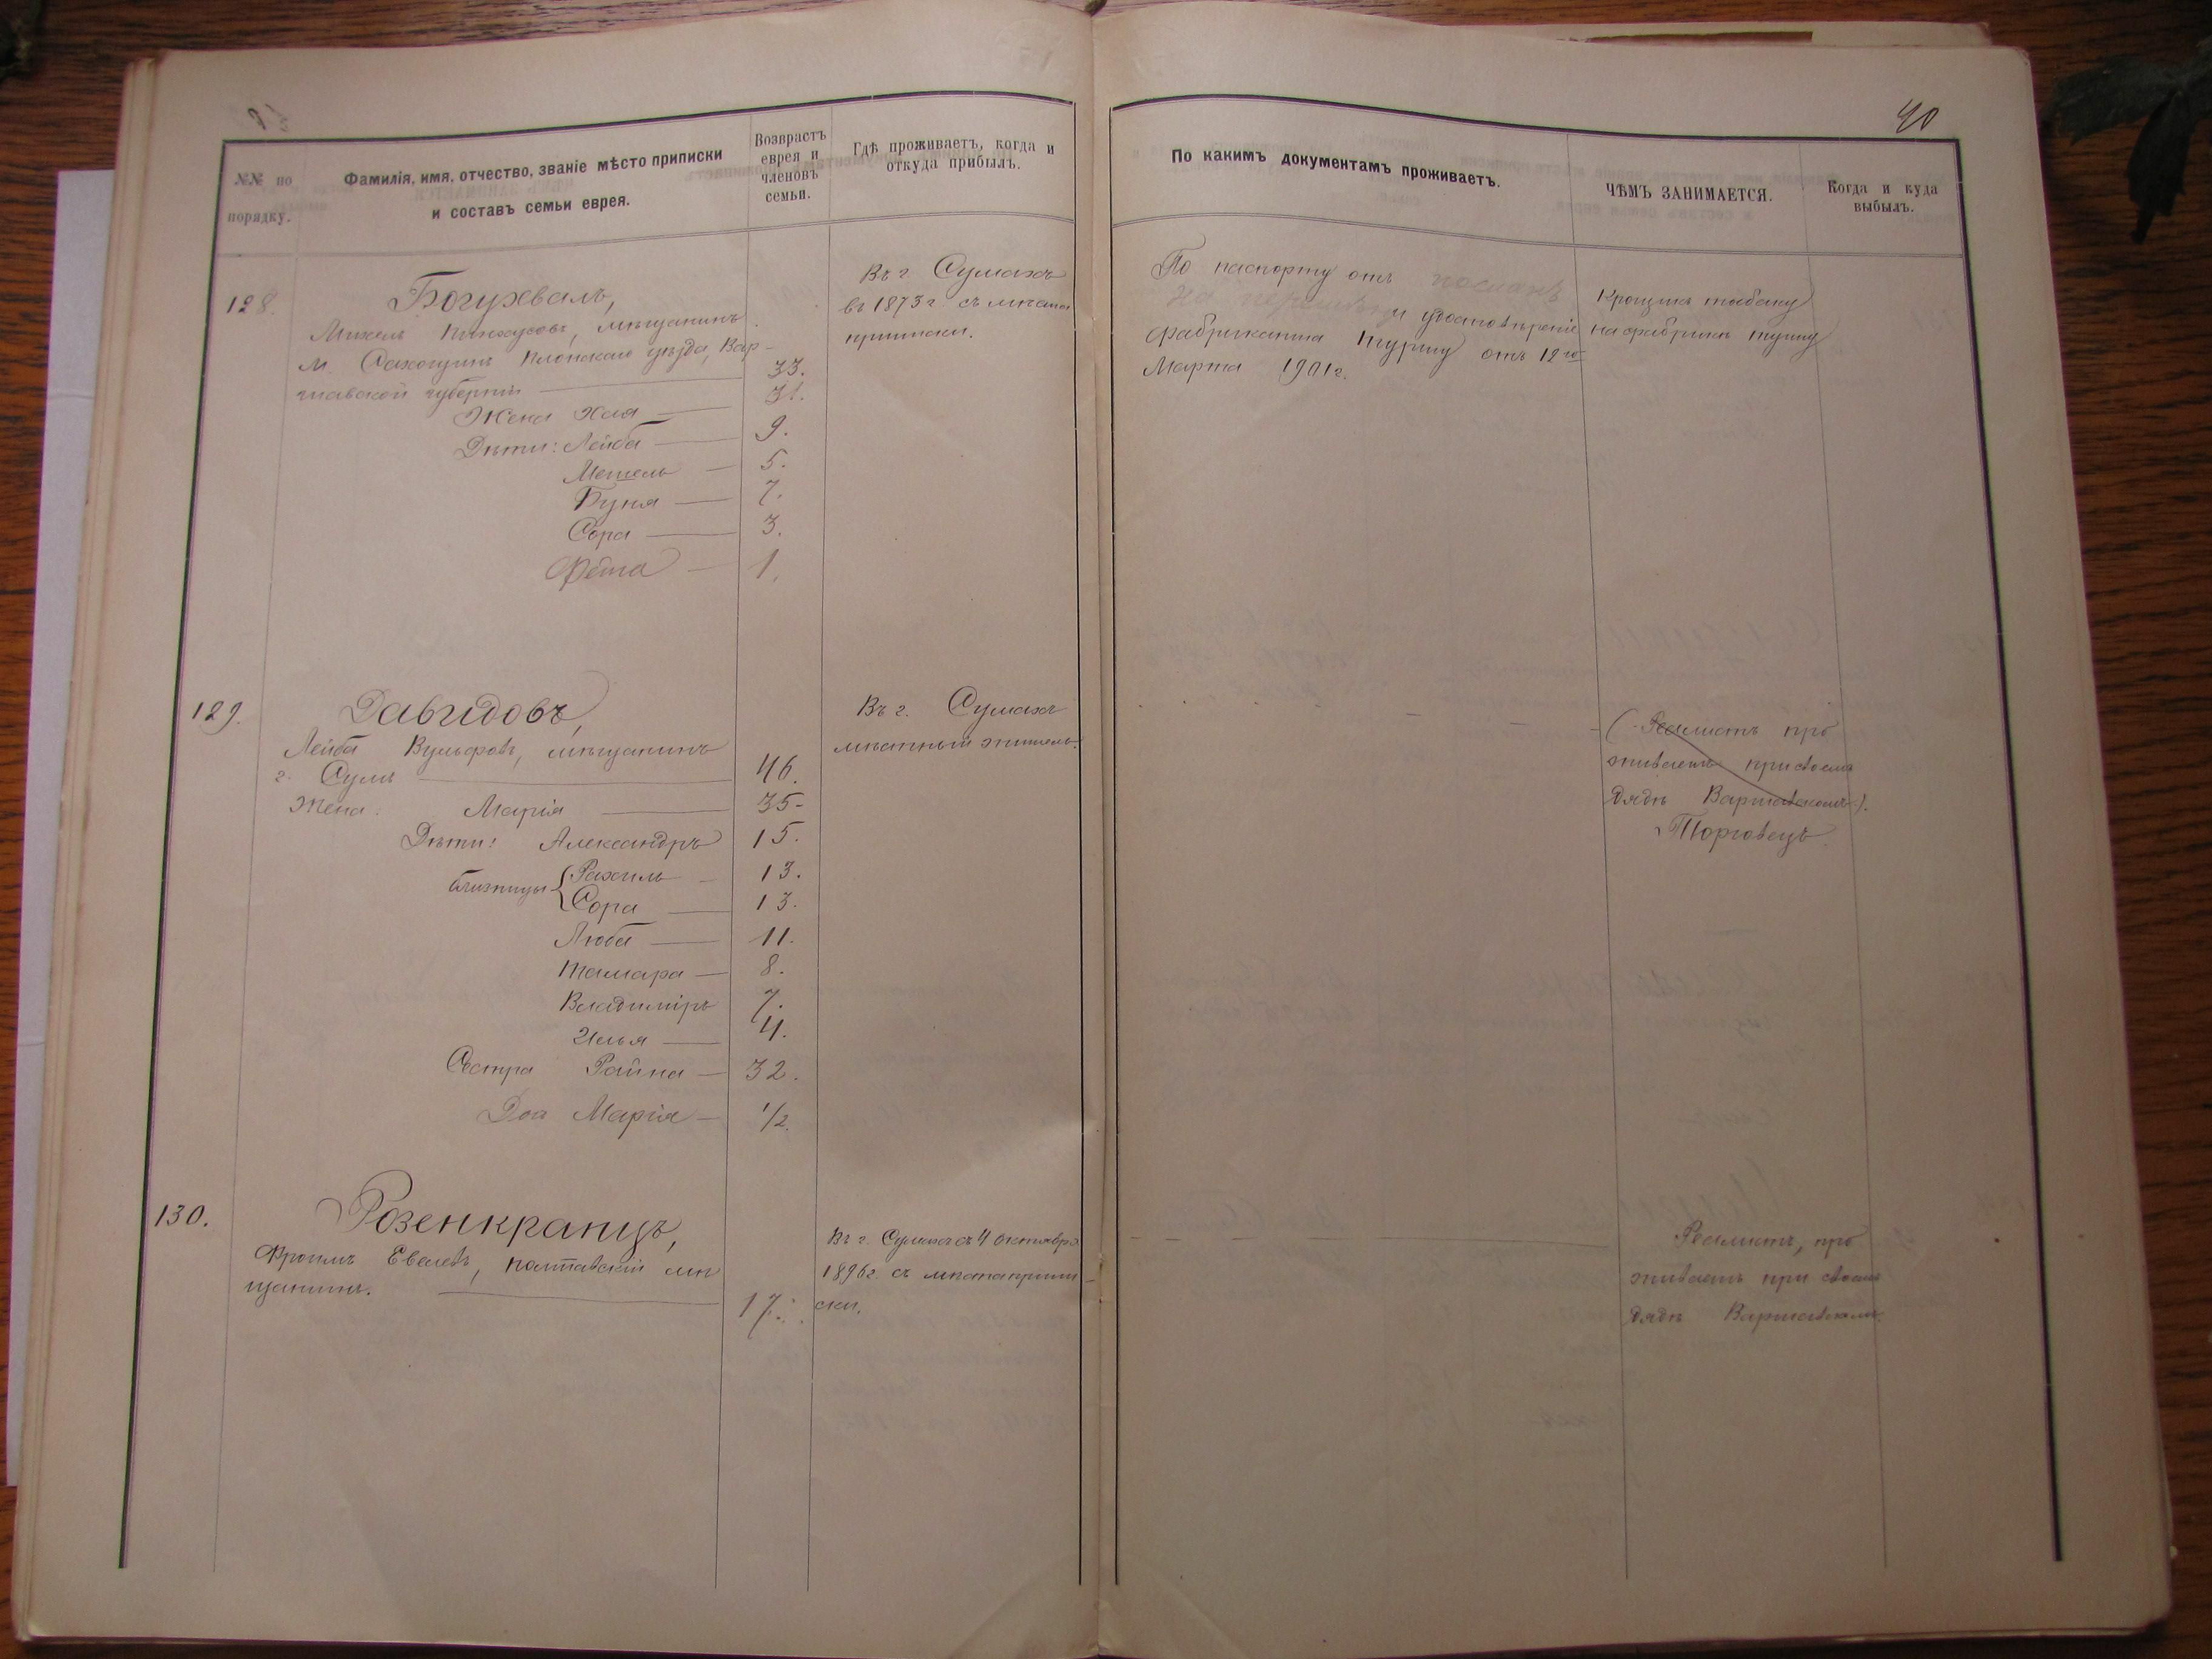 40
№№ по порядку.
Фамилія, имя, отчество, званіе мѣсто приписки
и составъ семьи еврея.
Возврастъ
еврея и
членовъ
семьи.
Гдѣ проживаетъ, когда и
откуда прибылъ.
По какимъ документамъ проживаетъ.
ЧѢМЪ ЗАНИМАЕТСЯ.
Когда и куда
выбылъ.
128.
Богухвалъ,
Пинхусовъ, мѣщанинъ
м. Плонскаго уѣзда, Вар-
шавской губерніи 33.
Жена Хая 31.
Дѣти: Лейба 9.
5.
Буня 7.
Сора 3.
1.
Въ г. Сумахъ
въ 1873 г. съ мѣста
приписки.
По паспорту отъ посланъ
на и удостовѣреніе
фабриканта Турину отъ 12го
Марта 1901 г.
Крошитъ табакъ
на фабрикѣ
129.
Давидовъ,
Лейба Вульфовъ, мѣщанинъ
г. Сумъ 46.
Жена: Марія 35
Дѣти: Александръ 15.
близнецы Рахиль 13.
Сора 13.
Люба 11.
Тамара 8.
Владиміръ 7.
Илья 4.
Сестра Райна 32.
Доч Марія 1/2.
Въ г. Сумахъ
мѣстный житель.
(Реалистъ про
живаетъ при своемъ
дядѣ Варшавскомъ).
Торговецъ.
130.
Розенкранцъ,
Фроимъ Евелевъ, полтавскій мѣ
щанинъ. 17.
Въ г. Сумахъ съ 4 октября
1896 г. съ мѣста припи-
ски.
Реалистъ, про
живаетъ при своемъ
дядѣ Варшавскомъ.